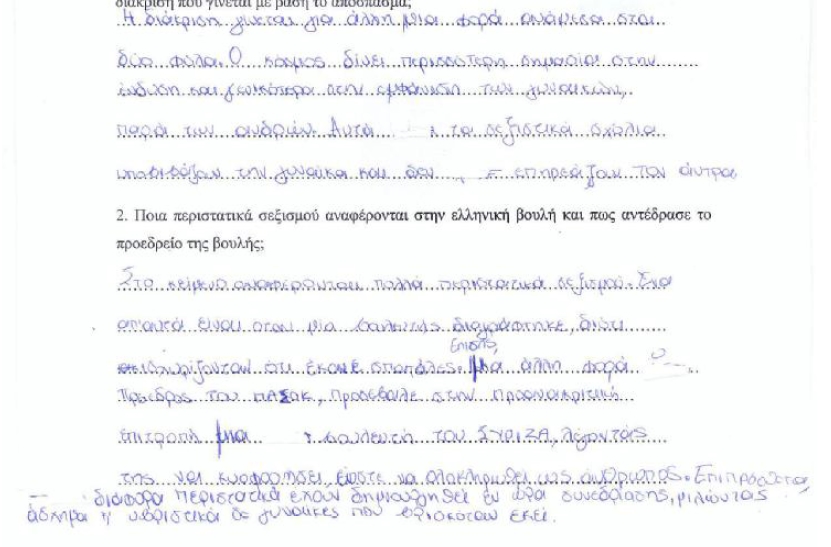 διάκριση που γίνεται με βάση το απόσπασμα;
Η διάκριση γίνεται για άλλη μια φορά ανάμεσα στα
δύο φύλα. Ο κόσμος δίνει περισσότερη σημασία στην
ένδυση και γενικότερα στην εμφάνιση των γυναικών,
παρά των ανδρών. Αυτά τα σεξιστικά σχόλια
υποβιβάζουν την γυναίκα και δεν επηρεάζουν τον άντρα
2. Ποια περιστατικά σεξισμού αναφέρονται στην ελληνική βουλή και πως αντέδρασε το
προεδρείο της βουλής;
Στο κείμενο αναφέρονται πολλά περιστατικά σεξισμού. Ένα
είναι όταν μία βουλευτής διαγράφτηκε, διότι
ότι έκανε σπατάλες. Επίσης, μια άλλη φορά ο
Πρόεδρος του ΠΑΣΟΚ, προσέβαλε στην προανακριτική
επιτροπή μια βουλευτή του ΣΥΡΙΖΑ, λέγοντάς
της να κυοφορήσει, ώστε να ολοκληρωθεί ως άνθρωπος. Επιπρόσθετα,
διάφορα περιστατικά έχουν δημιουργηθεί εν ώρα συνεδρίασης, μιλώντας
άσχημα ή υβριστικά σε γυναίκες που βρισκόταν εκεί.